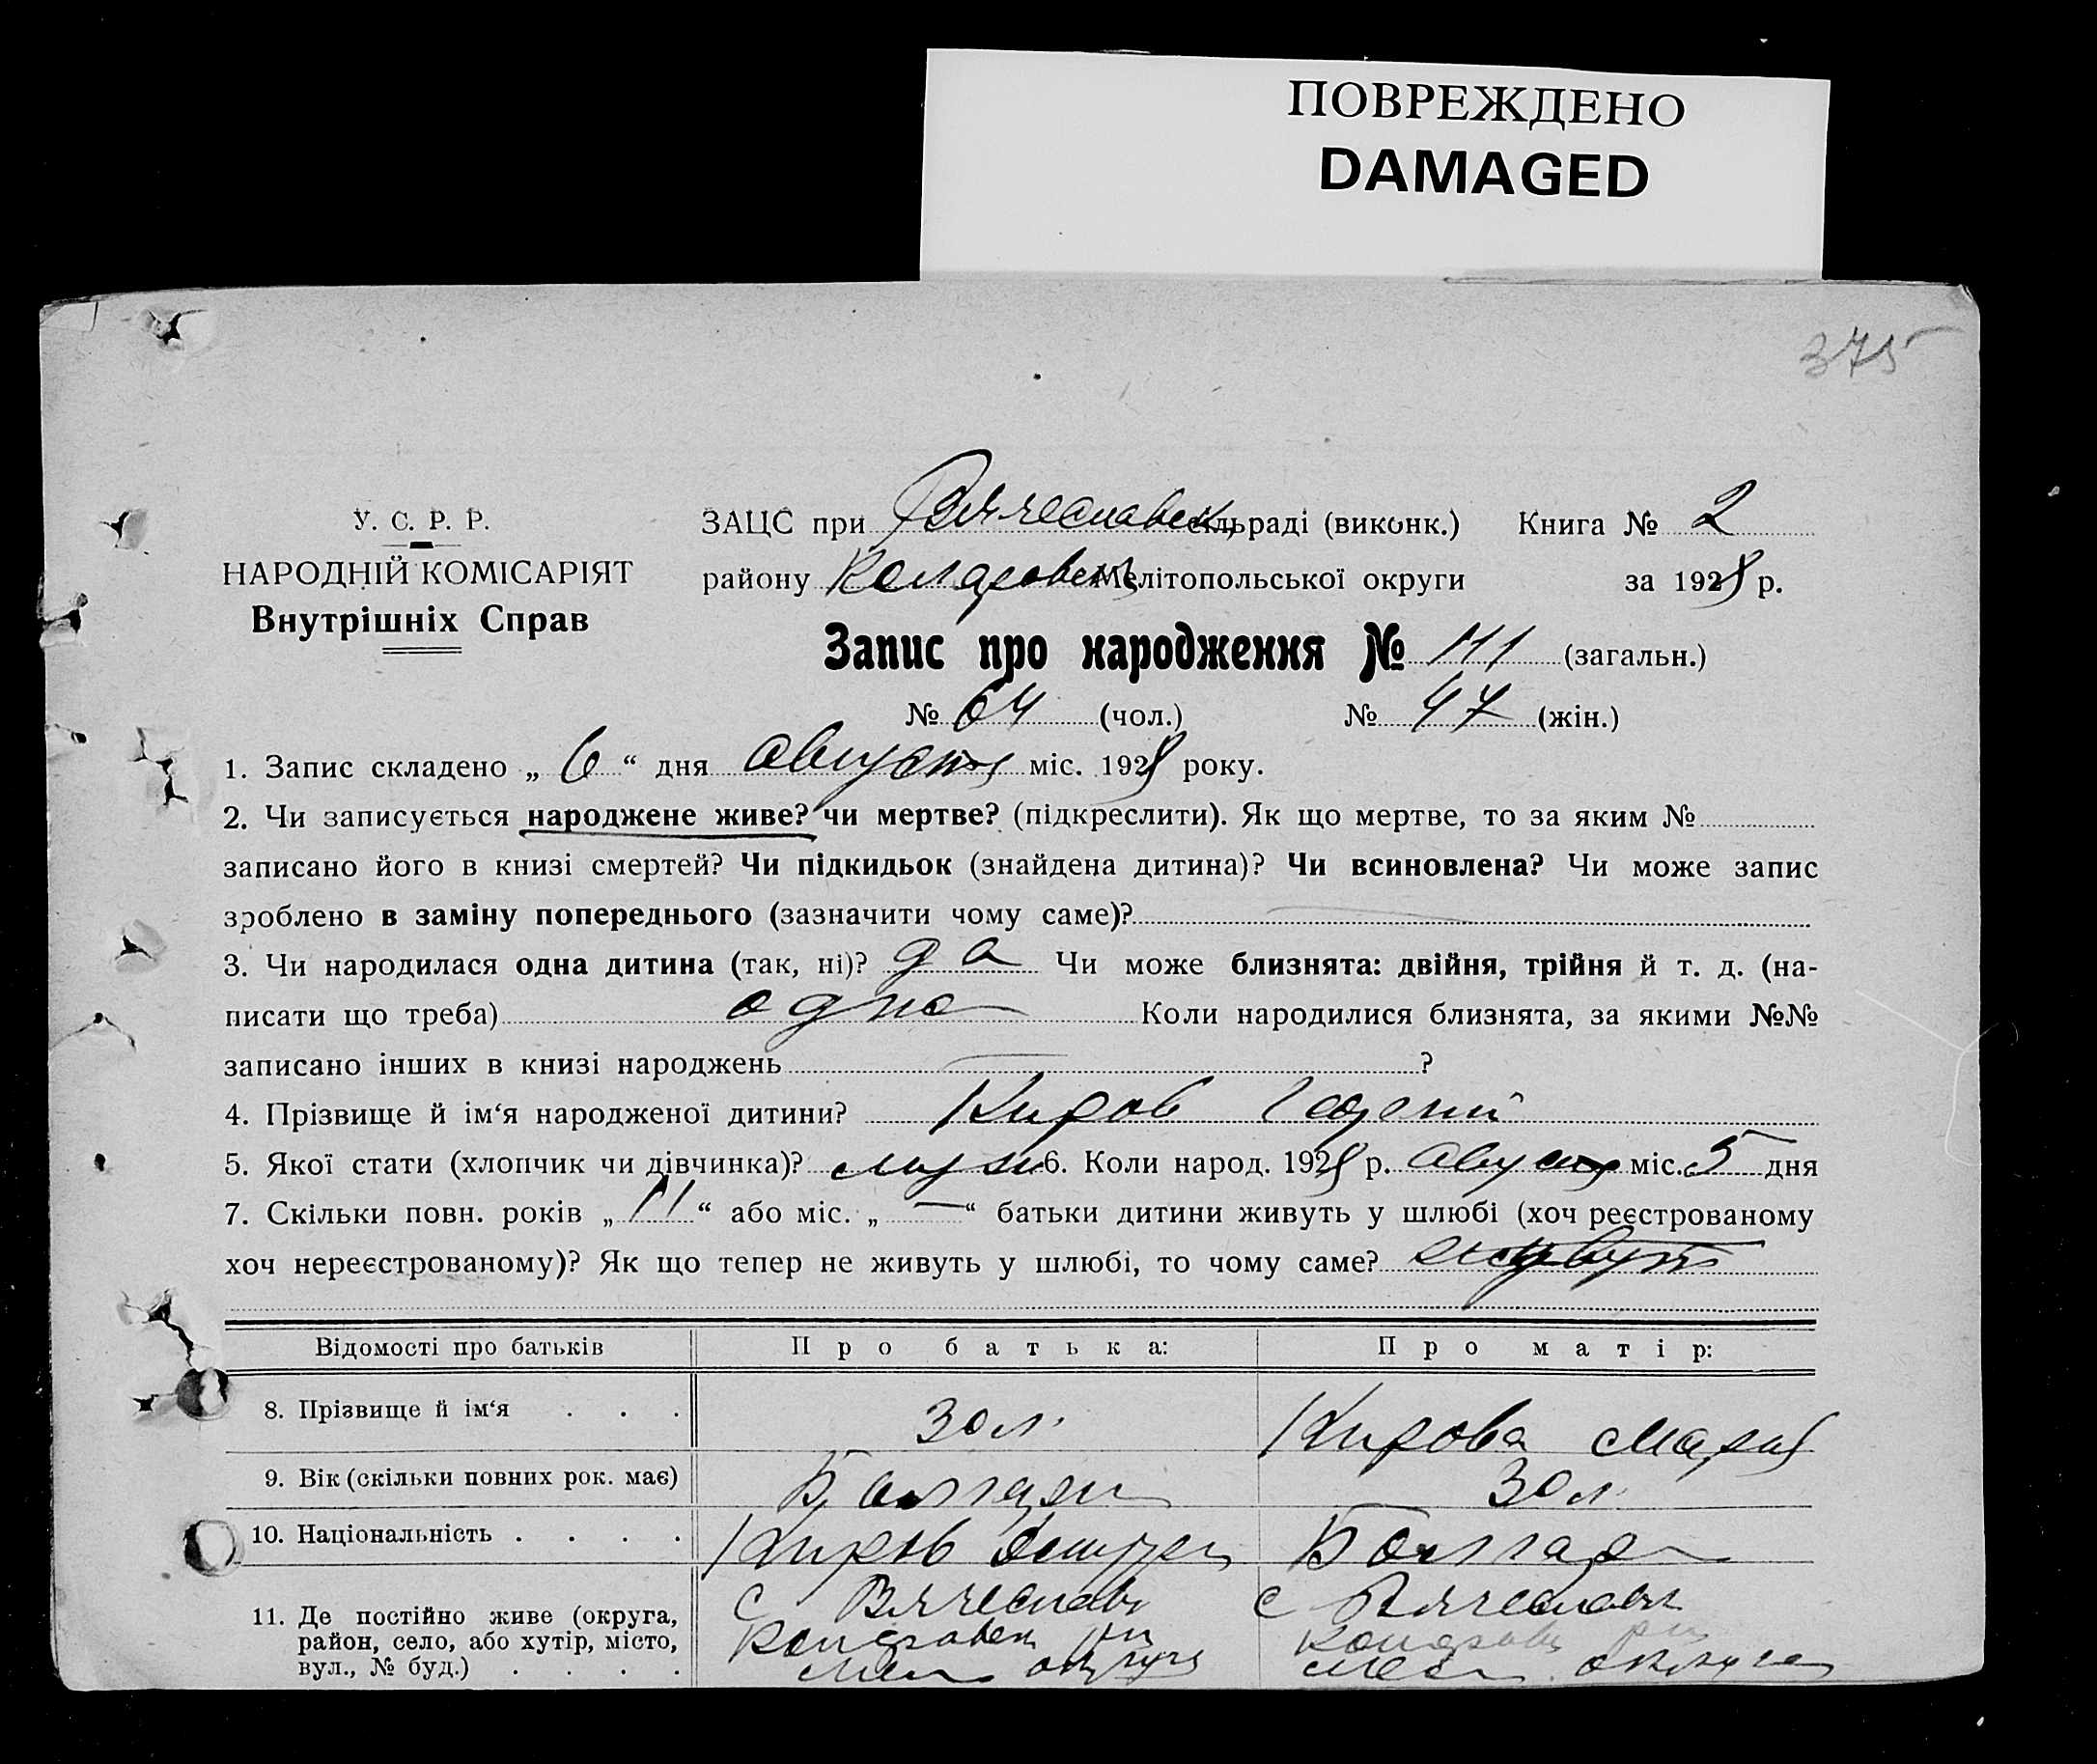 ПОВРЕЖДЕНО
DAMAGED
375
У. С. Р. Р.
НАРОДНІЙ КОМІСАРІЯТ
Внутрішніх Справ
ЗАЦС при Вячеславск сільраді (виконк.) Книга № 2
району Коларовск Мелітопольської округи за 1928 р.
Запис про народження № 111 (загальн.)
№ 64 (чол.) № 47 (жін.)
1. Запис складено „ 6 “ дня августа міс. 1928 року.
2. Чи записується народжене живе? чи мертве? (підкреслити). Як що мертве, то за яким №
записано його в книзі смертей? Чи підкидьок (знайдена дитина)? Чи всиновлена? Чи може запис
зроблено в заміну попереднього (зазначити чому саме)?
3. Чи народилася одна дитина (так, ні)? да Чи може близнята: двійня, трійня й т. д. (на-
писати що треба) одно Коли народилися близнята, за якими №№
записано інших в книзі народжень ?
4. Прізвище й ім‘я народженої дитини? Киров
5. Якої стати (хлопчик чи дівчинка)? муж 6. Коли народ. 1928 р. августа міс. 5 дня
7. Скільки повн. років „ 11 “ або міс. „ — “ батьки дитини живуть у шлюбі (хоч реєстрованому
хоч нереєстрованому)? Як що тепер не живуть у шлюбі, то чому саме? живут
Відомості про батьків Про батька: Про матір:
8. Прізвище й ім‘я . . . 30 л. Кирова Мария
9. Вік (скільки повних рок. має) Болгарин 30 л.
10. Національність . . . . Киров Дмитрий Болгарка
11. Де постійно живе (округа, с Вячеславк с Вячеславк
район, село, або хутір, місто, Коларовск рн Коларовск рн
вул., № буд.) . . . . Мел округа Мел округа